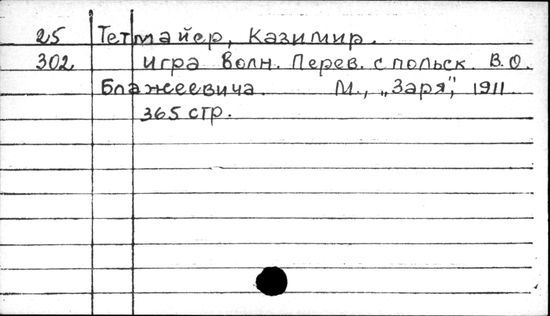 25 Тетмайер, Казимир.
302 Игра волн. Перев. с польск. В.О.
Блажеевича. М., „Заря", 1911.
365 стр.